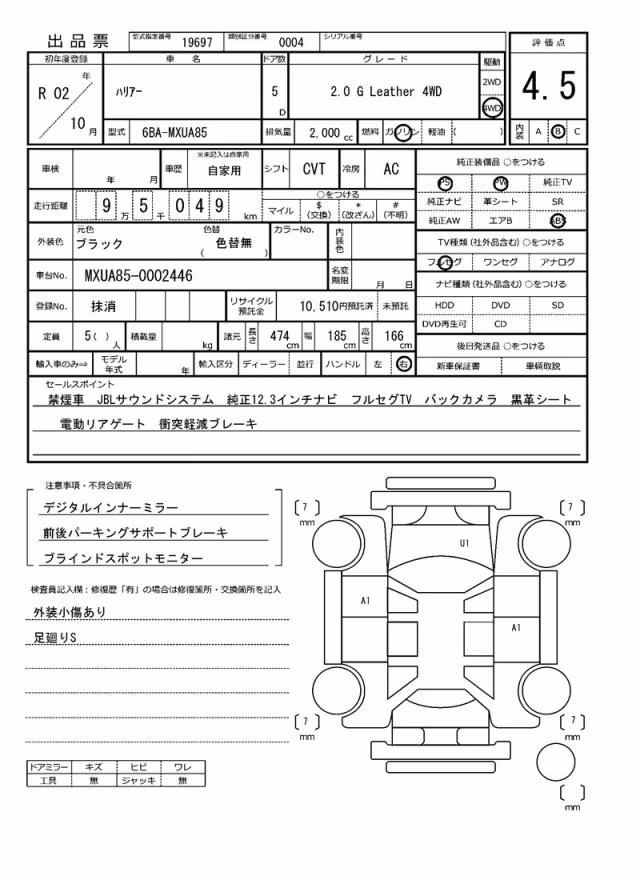 出品票 型式指定番号 19697 類別区分番号 0004 シリアル番号
評価点
初年度登録 車名 ドア数 グレード 駆動
年 2WD
R 02 ハリアー 5 D 2.0 G Leather 4WD 4.5
10 月 4WD
型式 6BA-MXUA85 排気量 2,000 cc 燃料 ガソリン 軽油 ( ) 内装 A B C
車検 年 月 車歴 ※未記入は自家用 自家用 シフト CVT 冷房 AC
純正装備品 ○をつける
PS PW 純正TV
純正ナビ 革シート SR
純正AW エアB ABS
走行距離 9 5 万 千 0 4 9 km
○をつける
マイル $ (交換) * (改ざん) # (不明)
外装色 元色 ブラック 色替 ( 色替無 ) カラーNo. 内装色
TV種類 (社外品含む) ○をつける
フルセグ ワンセグ アナログ
車台No. MXUA85-0002446 名変期限 月 日
ナビ種類 (社外品含む) ○をつける
HDD DVD SD
DVD再生可 CD
登録No. 抹消 リサイクル預託金 10,510円預託済 未預託
定員 5( ) 人 積載量 kg 諸元 長さ 474 cm 幅 185 cm 高さ 166 cm
後日発送品 ○をつける
新車保証書 車輌取説
輸入車のみ⇒ モデル年式 年 輸入区分 ディーラー 並行 ハンドル 左 右
セールスポイント
禁煙車 JBLサウンドシステム 純正12.3インチナビ フルセグTV バックカメラ 黒革シート
電動リアゲート 衝突軽減ブレーキ
注意事項・不具合箇所
デジタルインナーミラー
前後パーキングサポートブレーキ
ブラインドスポットモニター
検査員記入欄：修復歴「有」の場合は修復箇所・交換箇所を記入
外装小傷あり
足廻りS
ドアミラー キズ ヒビ ワレ
工具 無 ジャッキ 無
〔 7 〕 mm
〔 7 〕 mm
U1
A1
A1
〔 7 〕 mm
〔 7 〕 mm
〔 〕 mm